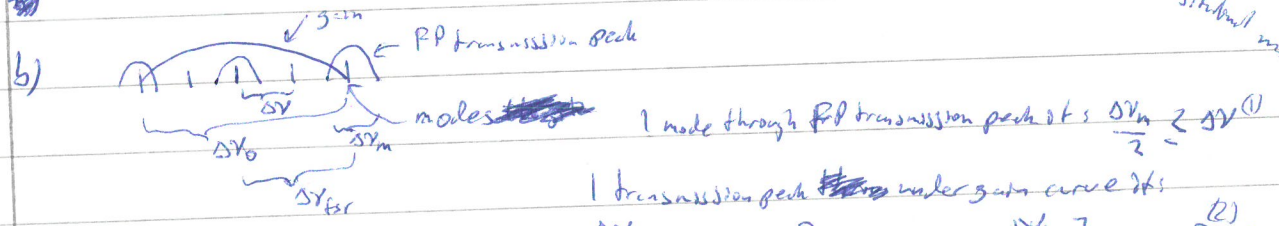 gain
FP transmission peak
b)
Δν
modes
Δν₀
Δνₘ
1 mode through FP transmission peak if: Δνₘ/2 ≤ Δν (1)
Δν_fsr
1 transmission peak under gain curve if:
(2)